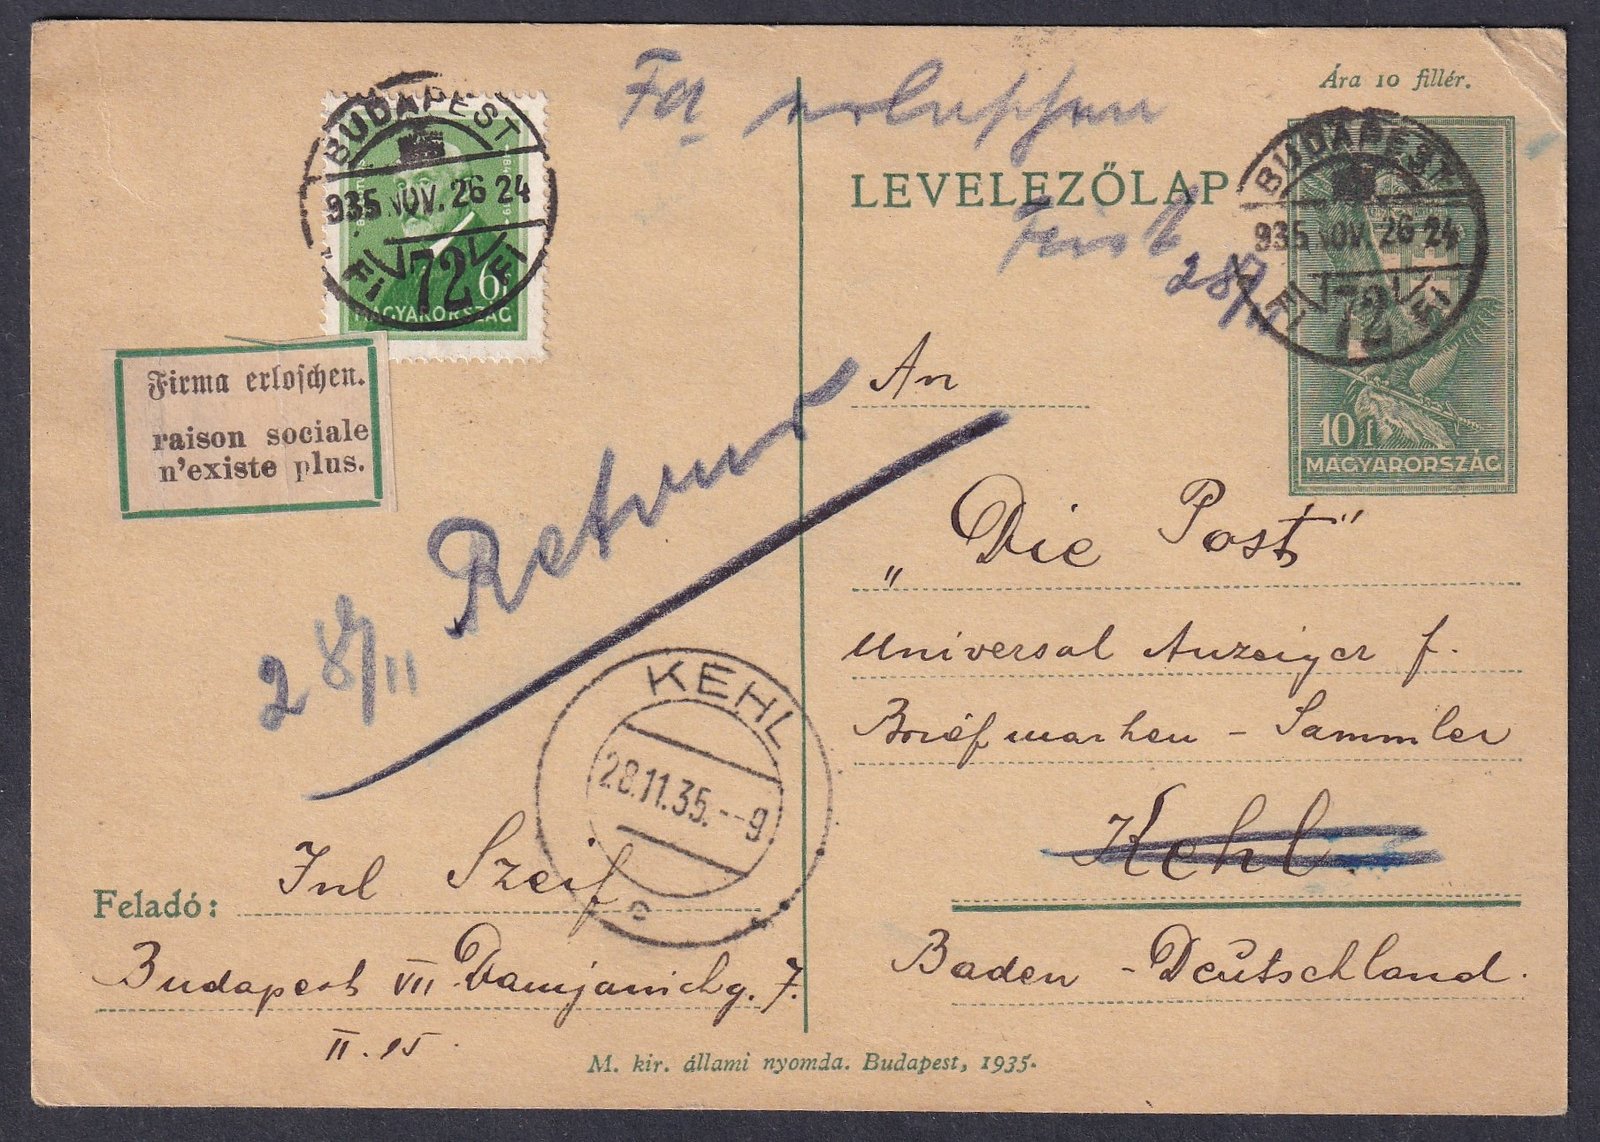 Ára 10 fillér.
Fa erloschen
LEVELEZŐLAP
28/11
BUDAPEST
935 NOV. 26 24
72
6f
MAGYARORSZÁG
BUDAPEST
935 NOV. 26 24
72
10 f
MAGYARORSZÁG
Firma erloschen.
raison sociale
n'existe plus.
Retour
28/11
An
„Die Post"
Universal Anzeiger f.
Briefmarken - Sammler
Kehl
Baden - Deutschland.
KEHL
28.11.35.--9
c
Feladó:
Szeif
Budapest VII Damjanichg. 7.
II. 15.
M. kir. állami nyomda. Budapest, 1935.